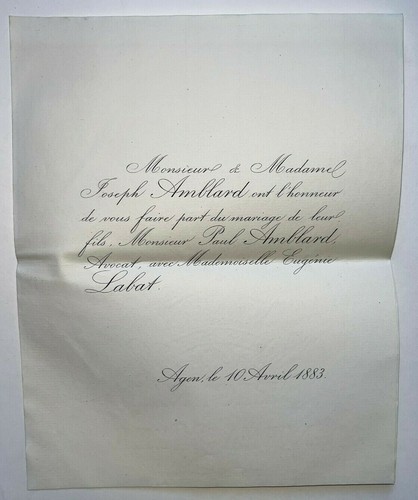 Monsieur & Madame
Joseph Amblard ont l'honneur
de vous faire part du mariage de leur
fils, Monsieur Paul Amblard,
Avocat, avec Mademoiselle Eugénie
Labat.
Agen, le 10 Avril 1883.